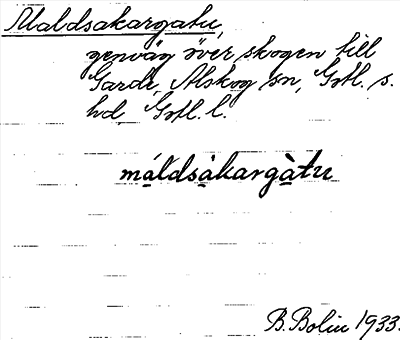 Maldsakargatu,
genväg över skogen till
Garde, Alskog sn, Gotl. s.
hd, Gotl. l.
máldsàkargàtu
B. Bolin 1933.